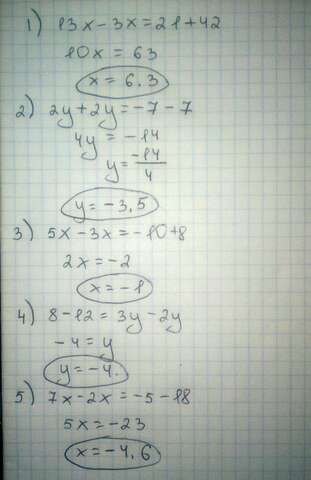 1) 13x - 3x = 21 + 42
10x = 63
x = 6,3
2) 2y + 2y = -7 - 7
4y = -14
y = -14/4
y = -3,5
3) 5x - 3x = -10 + 8
2x = -2
x = -1
4) 8 - 12 = 3y - 2y
-4 = y
y = -4.
5) 7x - 2x = -5 - 18
5x = -23
x = -4,6